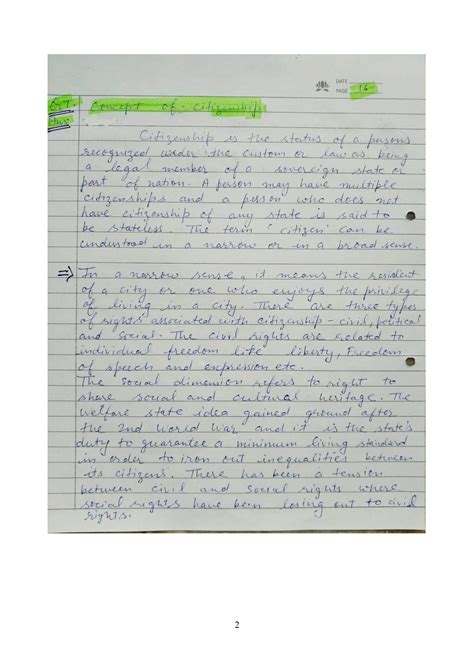 DATE
PAGE 16
Q.7. Concept of Citizenship
Ans.
Citizenship is the status of a persons
recognized under the custom or law as being
a legal member of a sovereign state or
part of nation. A person may have multiple
citizenships and a person who does not
have citizenship of any state is said to
be stateless. The term 'citizen' can be
understood in a narrow or in a broad sense.
⇒ In a narrow sense, it means the resident
of a city or one who enjoys the privilege
of living in a city. There are three types
of rights associated with citizenship - civil, political
and social. The civil rights are related to
individual freedom like liberty, Freedom
of speech and expression etc.
The Social dimension refers to right to
share social and cultural heritage. The
welfare state idea gained ground after
the 2nd World War and it is the state's
duty to guarantee a minimum living standard
in order to iron out inequalities between
its citizens. There has been a tension
between civil and social rights where
social rights have been losing out to civil
rights.
2